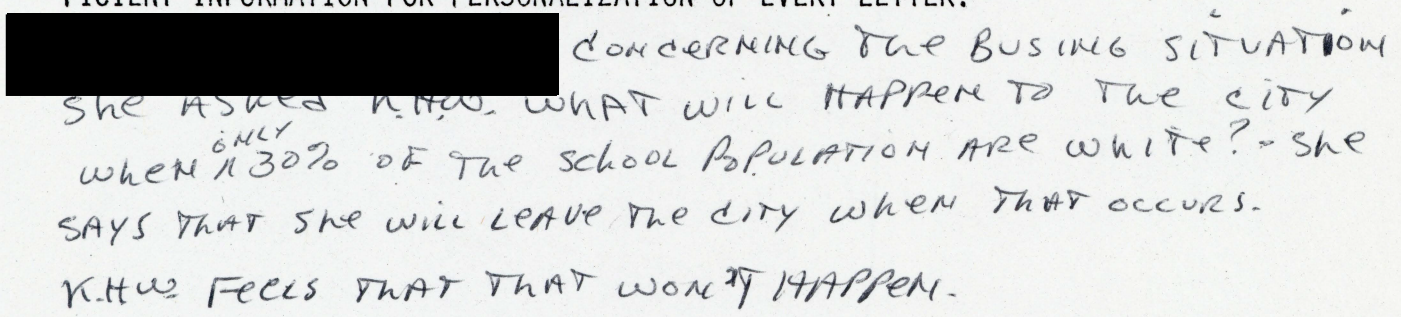 FICIENT INFORMATION FOR PERSONALIZATION OF EVERY LETTER.
CONCERNING THE BUSING SITUATION
SHE ASKED K.H.W. WHAT WILL HAPPEN TO THE CITY
WHEN ONLY 30% OF THE SCHOOL POPULATION ARE WHITE? - SHE
SAYS THAT SHE WILL LEAVE THE CITY WHEN THAT OCCURS.
K.H.W. FEELS THAT THAT WON'T HAPPEN.